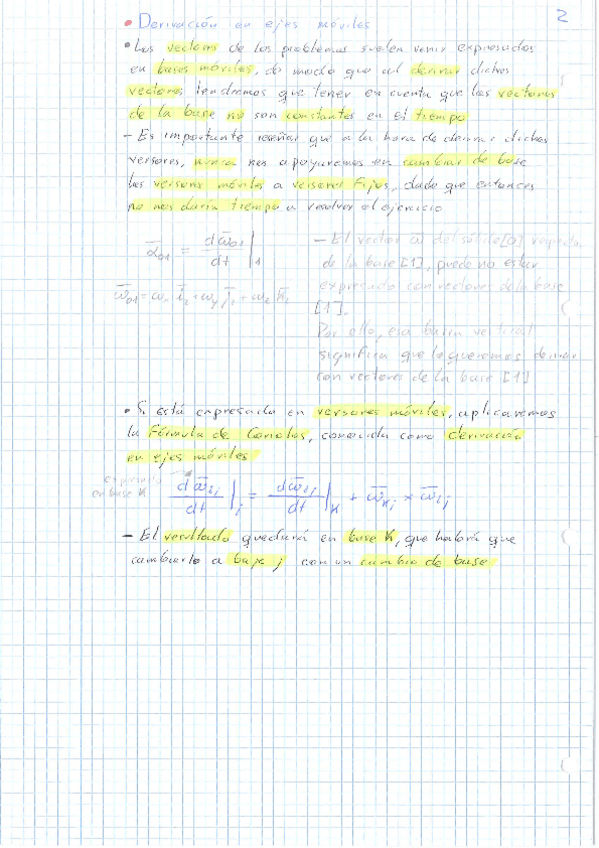 2
• Derivación en ejes móviles
• Los vectores de los problemas suelen venir expresados
en bases móviles, de modo que al derivar dichos
vectores tendremos que tener en cuenta que los vectores
de la base no son constantes en el tiempo
- Es importante reseñar que a la hora de derivar dichos
versores, nunca nos apoyaremos en cambiar de base
los versores móviles a versores fijos, dado que entonces
no nos daría tiempo a resolver el ejercicio
ᾱ₀₁ = dω̄₀₁/dt |₁
ω̄₀₁ = ωx ī₂ + ωy j̄₂ + ωz k̄₂
- El vector ω̄ del sólido [0] respecto
de la base [1], puede no estar
expresado con vectores de la base
[1].
Por ello, esa barra vertical
significa que lo queremos derivar
con vectores de la base [1]
• Si está expresado en versores móviles, aplicaremos
la Fórmula de Coriolis, conocida como derivación
en ejes móviles
expresado
en base K
dω̄ᵢⱼ/dt |ⱼ = dω̄ᵢⱼ/dt |K + ω̄Kⱼ × ω̄ᵢⱼ
- El resultado quedará en base K, que habrá que
cambiarlo a base j con un cambio de base